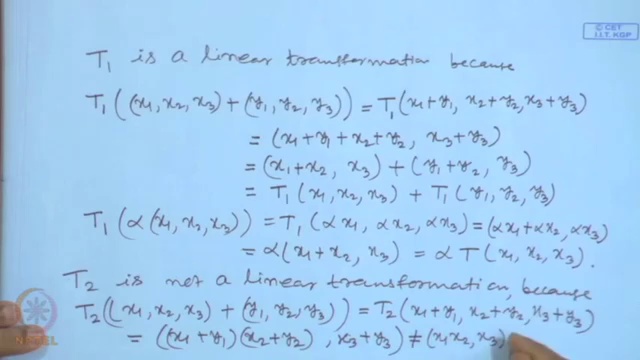 © CET
I.I.T. KGP
T₁ is a linear transformation because
T₁((x₁, x₂, x₃) + (y₁, y₂, y₃)) = T₁(x₁+y₁, x₂+y₂, x₃+y₃)
= (x₁+y₁+x₂+y₂, x₃+y₃)
= (x₁+x₂, x₃) + (y₁+y₂, y₃)
= T₁(x₁, x₂, x₃) + T₁(y₁, y₂, y₃)
T₁(α(x₁, x₂, x₃)) = T₁(αx₁, αx₂, αx₃) = (αx₁+αx₂, αx₃)
= α(x₁+x₂, x₃) = αT(x₁, x₂, x₃).
T₂ is not a linear transformation, because
T₂((x₁, x₂, x₃) + (y₁, y₂, y₃)) = T₂(x₁+y₁, x₂+y₂, x₃+y₃)
= ((x₁+y₁)(x₂+y₂), x₃+y₃) ≠ (x₁x₂, x₃)
NPTEL